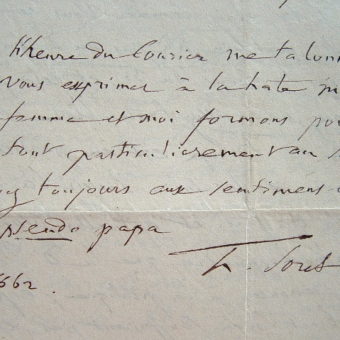 l'heure du courrier me talonn
vous exprimer à la hâte
femme et moi formons pou
tout particulièrement au
toujours aux sentimens
pseudo papa